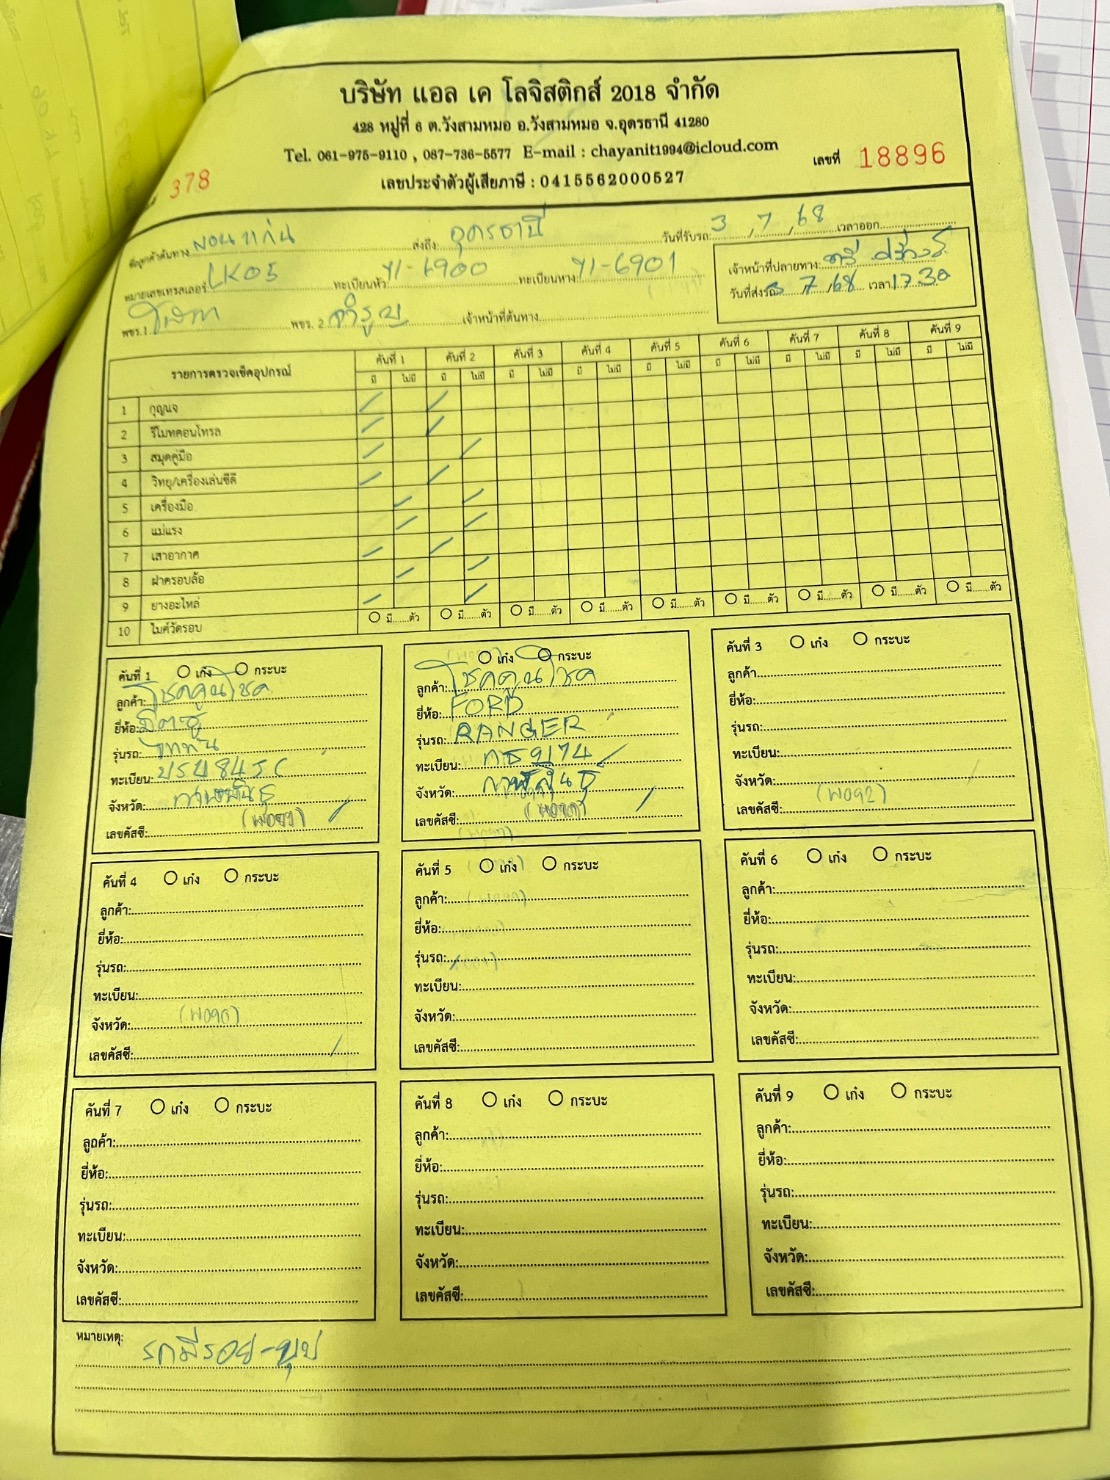 บริษัท แอล เค โลจิสติกส์ 2018 จำกัด
428 หมู่ที่ 6 ต.วังสามหมอ อ.วังสามหมอ จ.อุดรธานี 41280
Tel. 061-975-9110 , 087-736-5577 E-mail : chayanit1994@icloud.com
378 เลขที่ 18896
เลขประจำตัวผู้เสียภาษี : 0415562000527
ชื่อลูกค้าต้นทาง ขอนแก่น ส่งถึง อุดรธานี วันที่รับรถ 3 / 7 / 68 เวลาออก
หมายเลขเทรลเลอร์ LK05 ทะเบียนหัว 71-6900 ทะเบียนหาง 71-6901 เจ้าหน้าที่ปลายทาง
วันที่ส่งรถ 3 7 68 เวลา 17.30
พขร. 1 พขร. 2 จำรูญ เจ้าหน้าที่ต้นทาง
รายการตรวจเช็คอุปกรณ์ คันที่ 1 คันที่ 2 คันที่ 3 คันที่ 4 คันที่ 5 คันที่ 6 คันที่ 7 คันที่ 8 คันที่ 9
มี ไม่มี มี ไม่มี มี ไม่มี มี ไม่มี มี ไม่มี มี ไม่มี มี ไม่มี มี ไม่มี มี ไม่มี
1 กุญแจ / /
2 รีโมทคอนโทรล / /
3 สมุดคู่มือ / /
4 วิทยุ/เครื่องเล่นซีดี / /
5 เครื่องมือ / /
6 แม่แรง / /
7 เสาอากาศ / /
8 ฝาครอบล้อ / /
9 ยางอะไหล่ / /
10 ไมค์วัดรอบ มี......ตัว มี......ตัว มี......ตัว มี......ตัว มี......ตัว มี......ตัว มี......ตัว มี......ตัว มี......ตัว
คันที่ 1 เก๋ง กระบะ
ลูกค้า: โชคคูนโชค
ยี่ห้อ: มิตซู
รุ่นรถ: ไททัน
ทะเบียน:
จังหวัด: กาฬสินธุ์
เลขคัสซี: /
เก๋ง กระบะ
ลูกค้า: โชคคูนโชค
ยี่ห้อ: FORD
รุ่นรถ: RANGER
ทะเบียน: กธ9174 /
จังหวัด: กาฬสินธุ์
เลขคัสซี: /
คันที่ 3 เก๋ง กระบะ
ลูกค้า:
ยี่ห้อ:
รุ่นรถ:
ทะเบียน:
จังหวัด:
เลขคัสซี: (พ092)
คันที่ 4 เก๋ง กระบะ
ลูกค้า:
ยี่ห้อ:
รุ่นรถ:
ทะเบียน:
จังหวัด:
เลขคัสซี: /
คันที่ 5 เก๋ง กระบะ
ลูกค้า:
ยี่ห้อ:
รุ่นรถ:
ทะเบียน:
จังหวัด:
เลขคัสซี:
คันที่ 6 เก๋ง กระบะ
ลูกค้า:
ยี่ห้อ:
รุ่นรถ:
ทะเบียน:
จังหวัด:
เลขคัสซี:
คันที่ 7 เก๋ง กระบะ
ลูกค้า:
ยี่ห้อ:
รุ่นรถ:
ทะเบียน:
จังหวัด:
เลขคัสซี:
คันที่ 8 เก๋ง กระบะ
ลูกค้า:
ยี่ห้อ:
รุ่นรถ:
ทะเบียน:
จังหวัด:
เลขคัสซี:
คันที่ 9 เก๋ง กระบะ
ลูกค้า:
ยี่ห้อ:
รุ่นรถ:
ทะเบียน:
จังหวัด:
เลขคัสซี:
หมายเหตุ: รถมีรอย-บุบ